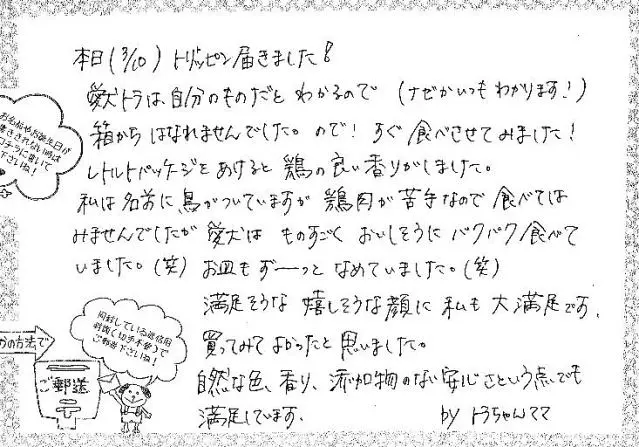 本日(3/10) トリッピン届きました!
愛犬トラは自分のものだと わかるので (ナゼかいつもわかります!)
箱から はなれませんでした。ので! すぐ 食べさせてみました!
レトルトパッケージをあけると 鶏の良い香りがしました。
私は名前に鳥がついていますが 鶏肉が苦手なので 食べては
みませんでしたが 愛犬は ものすごく おいしそうに パクパク食べて
いました。(笑) お皿もず〜っと なめていました。(笑)
満足そうな 嬉しそうな顔に 私も 大満足です。
買ってみて よかったと 思いました。
自然な色、香り、添加物のない安心さという点でも
満足しています。 by トラちゃんママ
お名前やお誕生日が
書ききれない時は
コチラに書いて
下さいね!
同封している返信用
封筒(切手不要)で
ご郵送下さいね!
の方法で
ご郵送